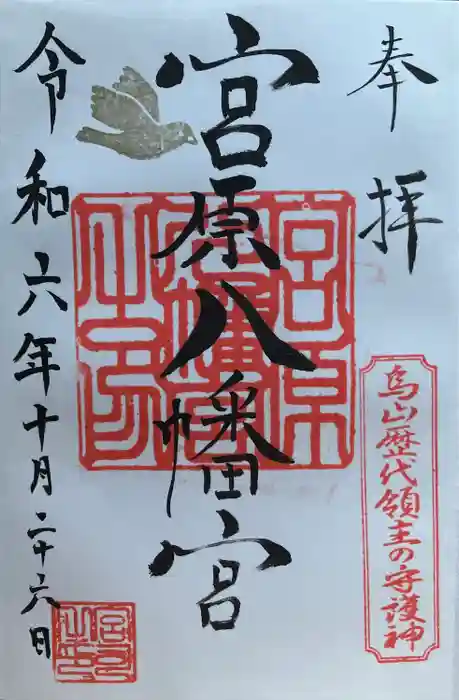 奉拝
烏山歴代領主の守護神
宮原八幡宮
令和六年十月二十六日